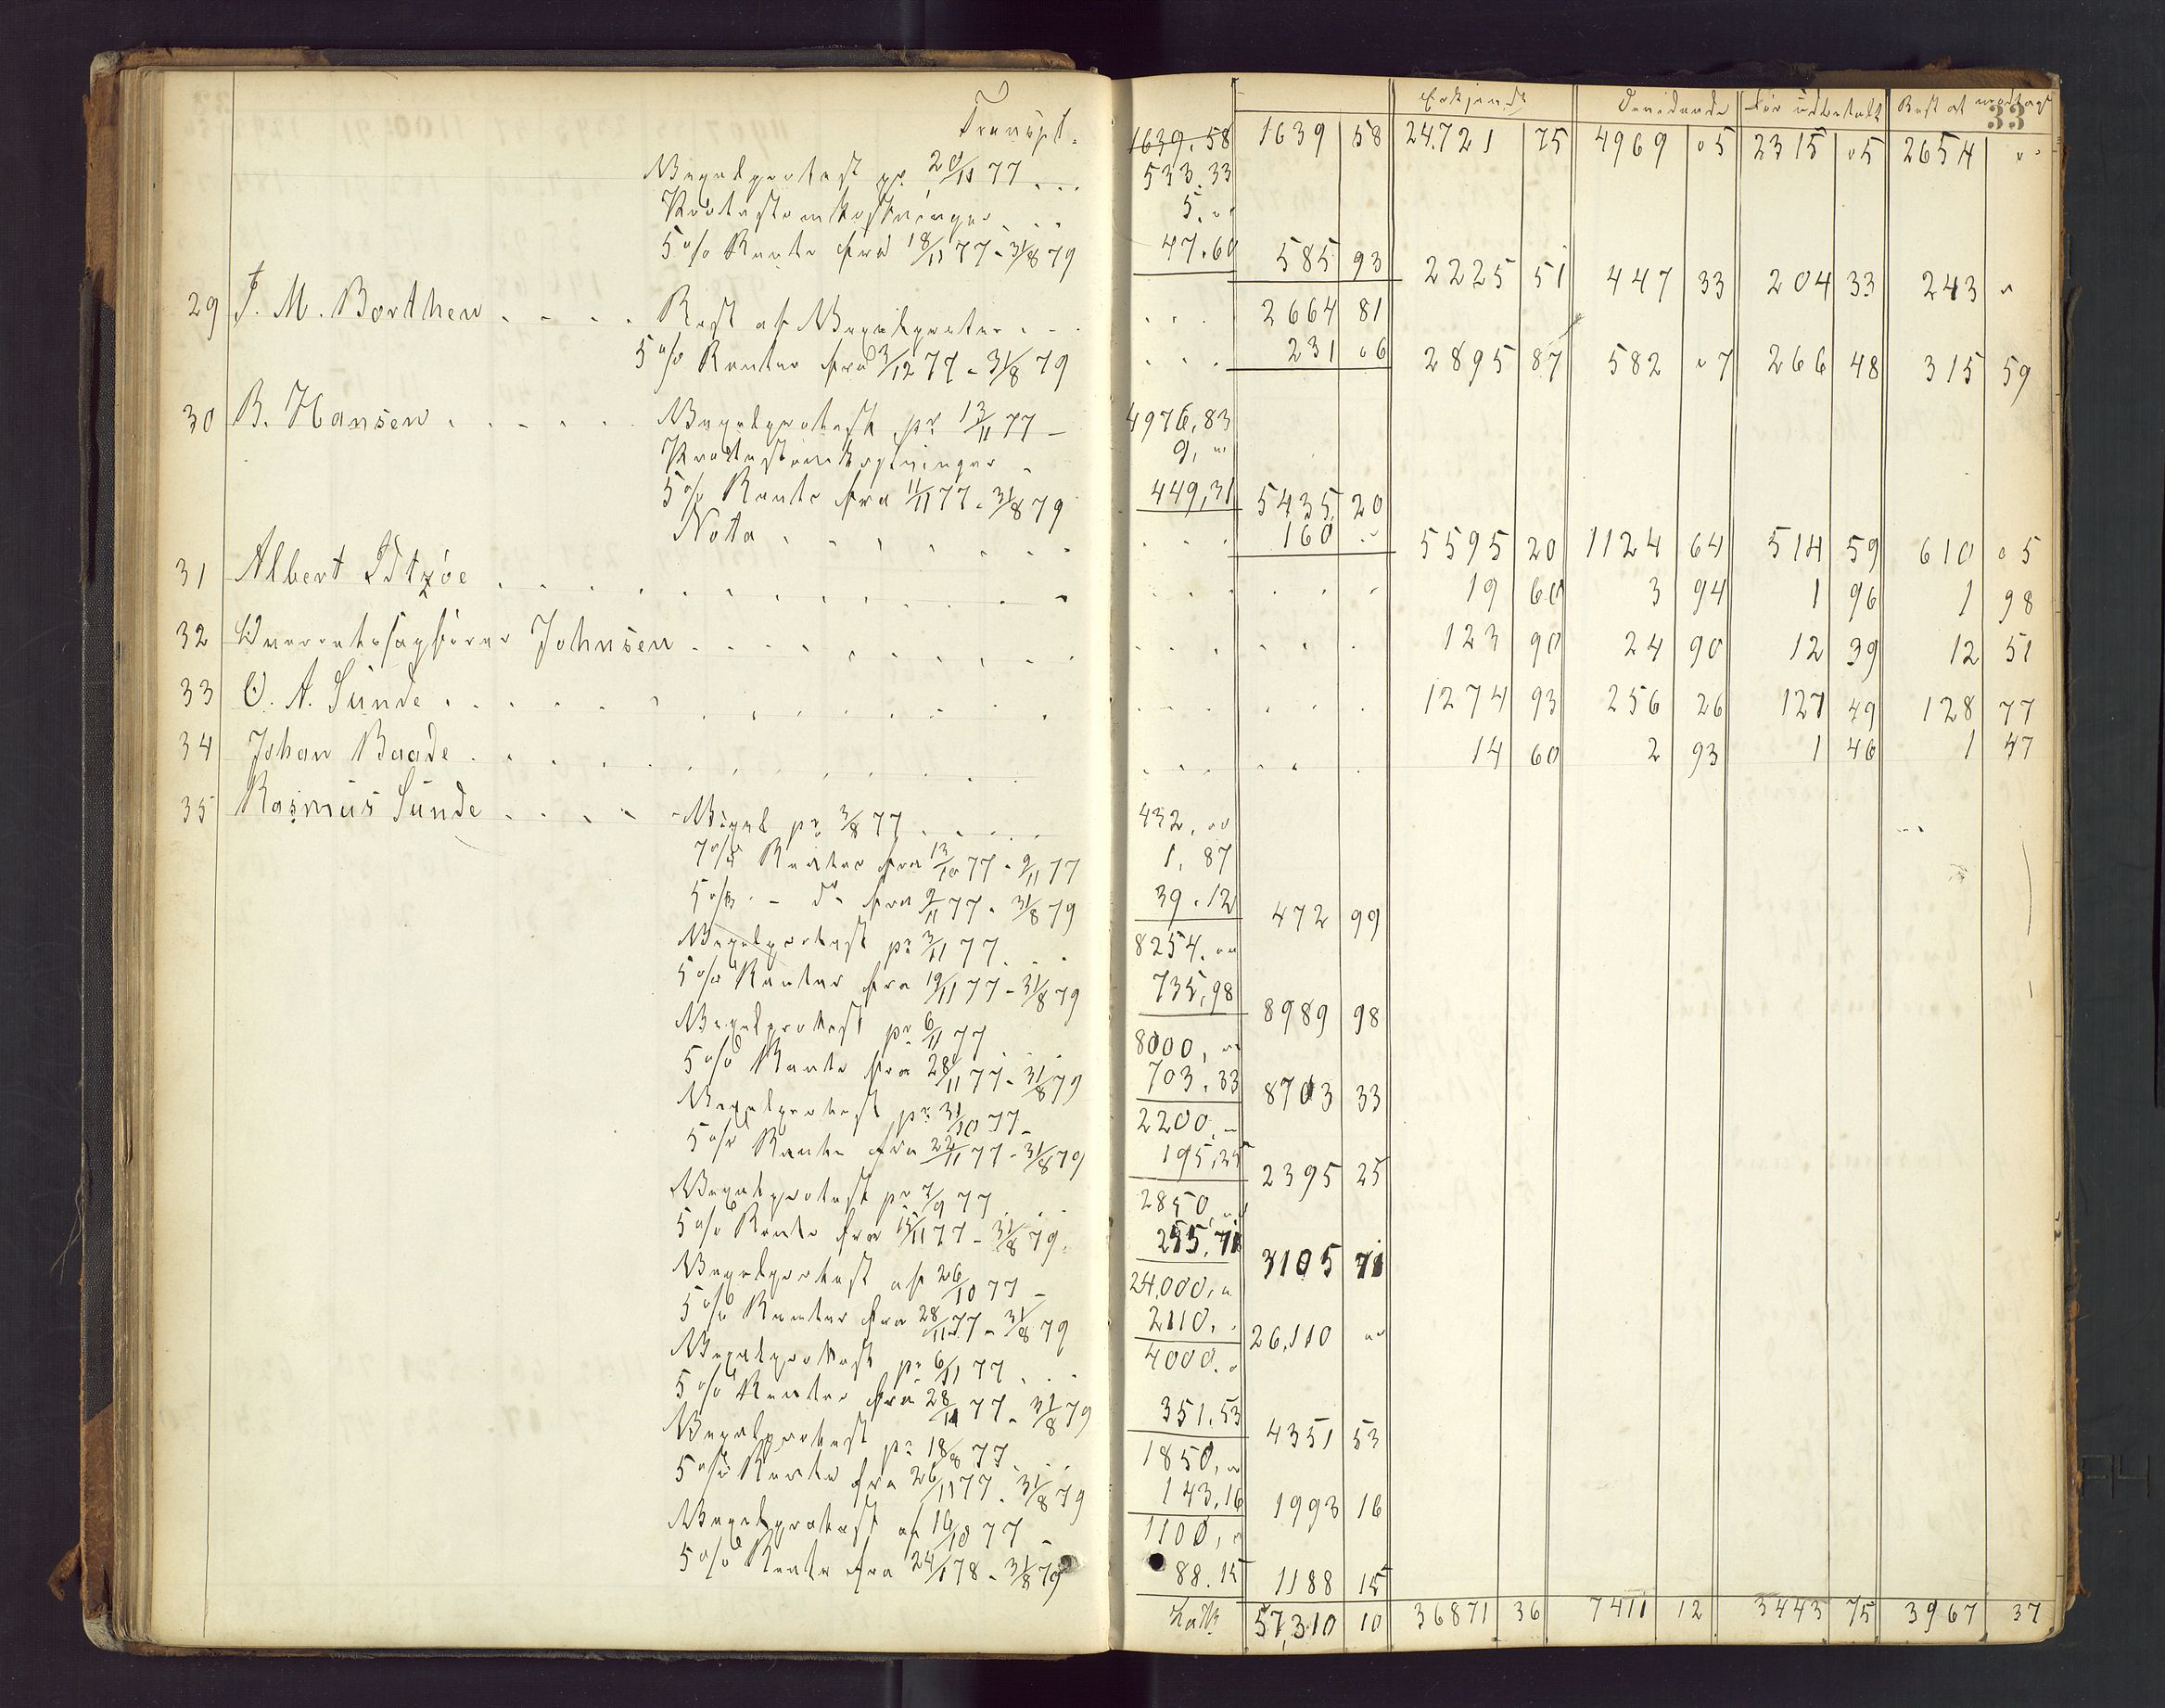 33
Erkjendt Dividende Før udbetalt Rest at modtage
Transpt. 1639.58 1639 58 24.721 75 4969 05 2315 05 2654 "
Vexelprotest pr. 20/11 77 533.33
Protestomkostninger 5.""
5 % Rente fra 18/11 77 - 31/8 79 47.60 585 93 2225 51 447 33 204 33 243 "
29 J. M. Borthen Rest af Vexelprotest 2664 81
5 % Renter fra 3/12 77 - 31/8 79 231 06 2895 87 582 07 266 48 315 59
30 B. Hansen Vexelprotest pr 13/11 77 4976,83
Protestomkostninger 9, "
5 % Rente fra 11/11 77 - 31/8 79 449,31 5435 20
Nota 160 " 5595 20 1124 64 514 59 610 05
31 Albert 19 60 3 94 1 96 1 98
32 Overretssagfører Johnsen 123 90 24 90 12 39 12 51
33 O. A. Sunde 1274 93 256 26 127 49 128 77
34 Johan Baade 14 60 2 93 1 46 1 47
35 Rasmus Sunde Vexel pr 3/8 77 432,""
7 % Renter fra 13/10 77 - 9/11 77 1,87
5 % - do fra 9/11 77 - 31/8 79 39.12 472 99
Vexelprotest pr 3/11 77 8254.""
5 % Renter fra 19/11 77 - 31/8 79 735,98 8989 98
Vexelprotest pr 6/11 77 8000,""
5 % Rente fra 28/11 77 - 31/8 79 703.33 8703 33
Vexelprotest pr 31/10 77 2200,-
5 % Rente fra 22/11 77 - 31/8 79 195,25 2395 25
Vexelprotest pr 7/9 77 2850,""
5 % Rente fra 15/11 77 - 31/8 79. 255.71 3105 71
Vexelprotest af 26/10 77 24,000,"
5 % Renter fra 28/11 77 - 31/8 79 2110, 26,110 ""
Vexelprotest pr 6/11 77 4000."
5 % Renter fra 28/11 77 - 31/8 79 351.53 4351 53
Vexelprotest pr 18/8 77 1850,"
5 % Rente fra 26/11 77 - 31/8 79 143,16 1993 16
Vexelprotest af 16/10 77 1100,"
5 % Rente fra 24/1 78 - 31/8 79 88.15 1188 15
Latk 57,310 10 36871 36 7411 12 3443 75 3967 37